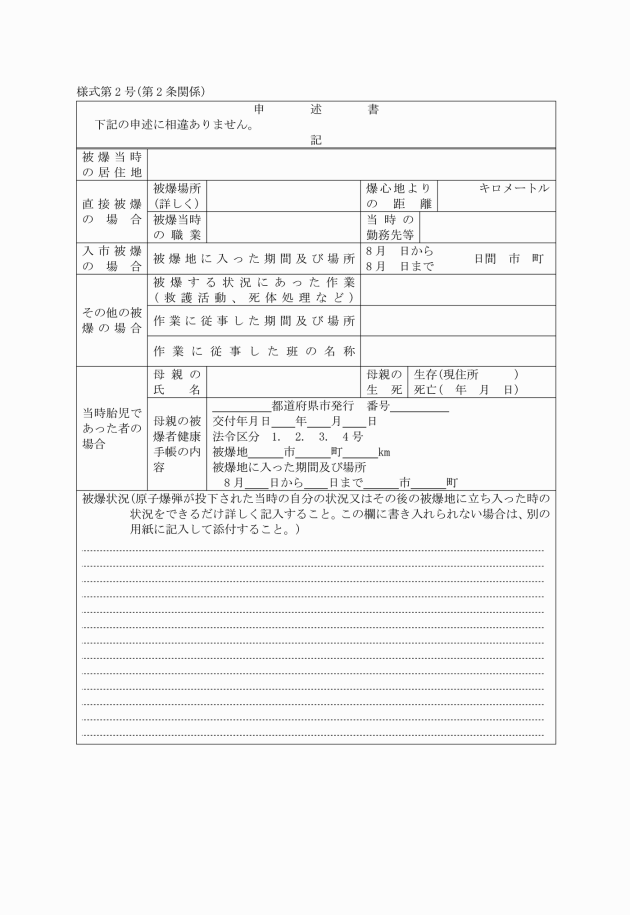 様式第２号(第２条関係)
申述書
下記の申述に相違ありません。
記
被爆当時
の居住地
直接被爆
の場合
被爆場所
(詳しく)
爆心地より
の距離
キロメートル
被爆当時
の職業
当時の
勤務先等
入市被爆
の場合
被爆地に入った期間及び場所
８月　日から
８月　日まで
日間　市　町
その他の被
爆の場合
被爆する状況にあった作業
(救護活動、死体処理など)
作業に従事した期間及び場所
作業に従事した班の名称
当時胎児で
あった者の
場合
母親の
氏名
母親の
生死
生存(現住所　　　)
死亡(　年　月　日)
母親の被
爆者健康
手帳の内
容
__________都道府県市発行　番号__________
交付年月日____年____月____日
法令区分　1.　2.　3.　4号
被爆地______市______町______km
被爆地に入った期間及び場所
８月____日から____日まで______市______町
被爆状況(原子爆弾が投下された当時の自分の状況又はその後の被爆地に立ち入った時の
状況をできるだけ詳しく記入すること。この欄に書き入れられない場合は、別の
用紙に記入して添付すること。)